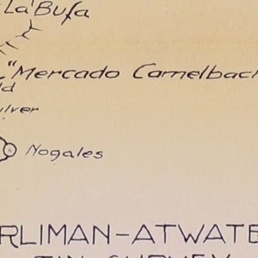 La Bufa
"Mercado Camelback
ld
ulver
Nogales
RLIMAN-ATWATE
TIN SURVEY